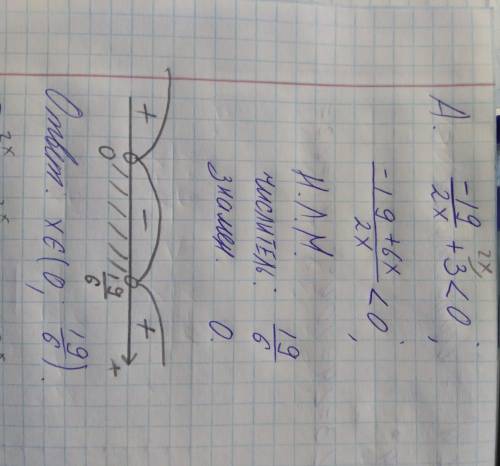 А. -19/2x + 3^{2x} < 0;
(-19 + 6x)/2x < 0;
Н.Л.М.
числитель: 19/6
знамен. 0.
+ 0 - 19/6 + x
Ответ: x∈(0; 19/6).
2x